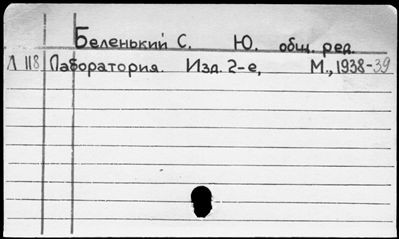 Беленький С. Ю. общ. ред.
Л 118 Лаборатория. Изд. 2-е, М., 1938-39